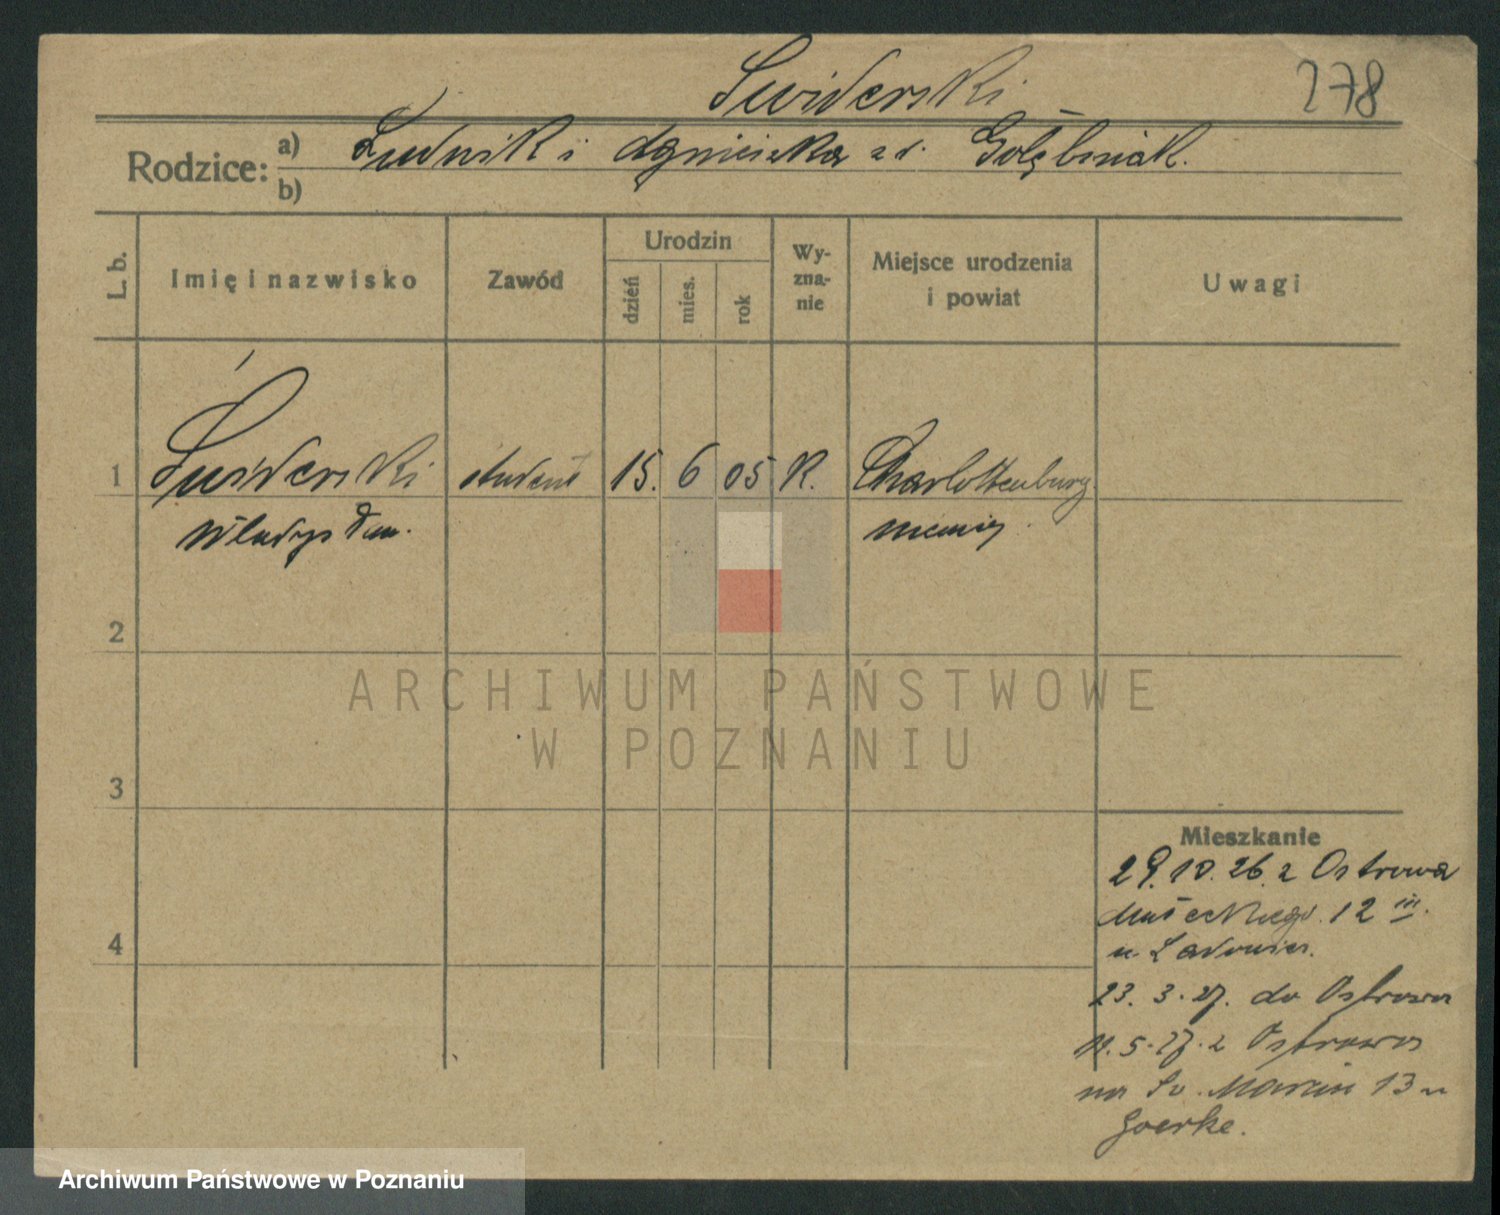 Świderski
278
Rodzice: a) Ludwik i Agnieszka z d. Gołębniak.
b)
L. b.
Imię i nazwisko
Zawód
Urodzin
dzień
mies.
rok
Wy-
zna-
nie
Miejsce urodzenia
i powiat
Uwagi
1 Świderski student 15. 6 05 R. Charlottenburg
Władysław. Niemcy
2
ARCHIWUM PAŃSTWOWE
W POZNANIU
3
Mieszkanie
29.10.26. z Ostrowa
12 III.
u
4
23. 3. 27. do Ostrowa
5. 27. z Ostrowa
na Św. Marcin 13 u
Goerke.
Archiwum Państwowe w Poznaniu